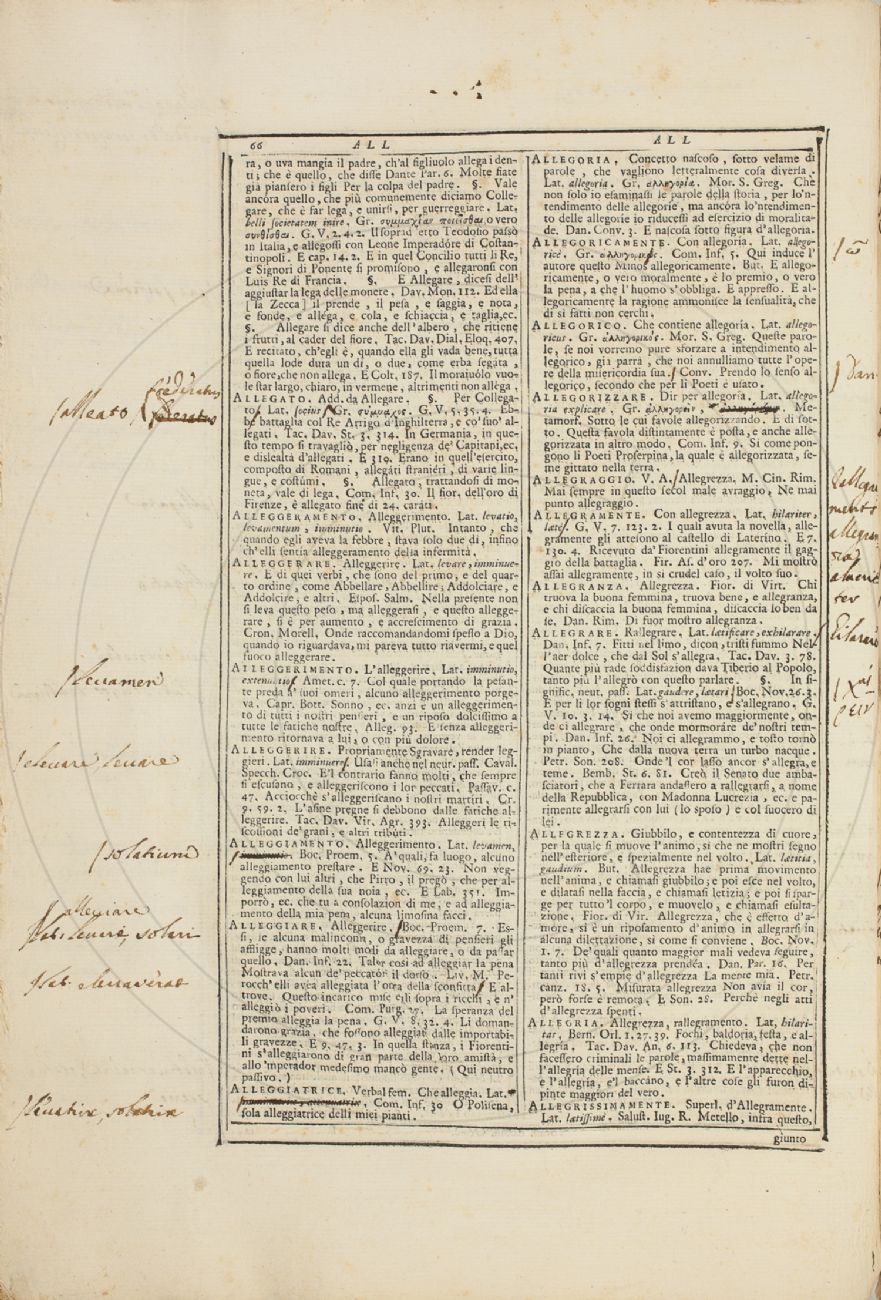 66 ALL
ra, o uva mangia il padre, ch'al figliuolo allega i den-
ti; che è quello, che disse Dante Par. 6. Molte fiate
già piansero i figli Per la colpa del padre. §. Vale
ancóra quello, che più comunemente diciamo Colle-
gare, che è far lega, e unirsi, per guerreggiare. Lat.
belli societatem inire. Gr. συμμαχίαν ποιεῖσθαι, o vero
συνθέσθαι. G. V. 2. 4. 2. Il soprad etto Teodosio passò
in Italia, e allegossi con Leone Imperadóre di Costan-
tinopoli. E cap. 14. 2. E in quel Concilio tutti li Re,
e Signori di Ponente si promisono, e allegaronsi con
Luis Re di Francia. §. E Allegare, dicesi dell'
aggiustar la lega delle monete. Dav. Mon. 112. Ed ella
[ la Zecca] il prende, il pesa, e saggia, e nota,
e fonde, e allega, e cola, e schiaccia, e taglia, ec.
§. Allegare si dice anche dell'albero, che ritiene
i frutti, al cader del fiore. Tac. Dav. Dial, Eloq. 407,
E recitato, ch'egli è, quando ella gli vada bene, tutta
quella lode dura un dì, o due, come erba segata,
o fiore, che non allega. E Colt. 187. Il moratuólo vuo-
le star largo, chiaro, in vermene, altrimenti non allega.
ALLEGATO. Add. da Allegare. §. Per Collega-
to. Lat. socius Gr. σύμμαχος. G. V. 5. 35. 4. Eb-
be battaglia col Re Arrigo d'Inghilterra, e co' suo' al-
legati. Tac. Dav. St. 3. 314. In Germania, in que-
sto tempo si travagliò, per negligenza de' Capitani, ec.
e dislealtà d'allegati. E 319. Erano in quell'esercito,
composto di Romani, allegáti straniéri, di varie lin-
gue, e costúmi. §. Allegato, trattandosi di mo-
neta, vale di lega. Com. Inf. 30. Il fior. dell'oro di
Firenze, è allegato fine di 24. caráti.
ALLEGGERAMENTO. Alleggerimento. Lat. levatio,
levamentum, imminutio. Vit. Plut. Intanto, che
quando egli aveva la febbre, stava solo due dì, infino
ch'elli sentia alleggeramento della infermità.
ALLEGGERARE. Alleggerire. Lat. levare, imminue-
re. E di quei verbi, che sono del primo, e del quar-
to ordine, come Abbellare, Abbellire; Addolciare, e
Addolcire; e altri. Espos. Salm. Nella presente non
si leva questo peso, ma alleggerasi, e questo allegge-
rare, si è per aumento, e accrescimento di grazia.
Cron. Morell. Onde raccomandandomi spesso a Dio,
quando io riguardava, mi pareva tutto riavermi, e quel
fuoco alleggerare.
ALLEGGERIMENTO. L'alleggerire. Lat. imminutio,
extenuatio. Amet. c. 7. Col quale portando la pesan-
te preda a' suoi omeri, alcuno alleggerimento porge-
va. Capr. Bott. Sonno, ec. anzi è un alleggerimen-
to di tutti i nostri pensieri, e un riposo dolcissimo a
tutte le fatiche nostre. Alleg. 93. E senza alleggeri-
mento ritornava a lui, o con più dolore.
ALLEGGERIRE. Propriamente Sgravare, render leg-
gieri. Lat. imminuere. Usasi anche nel neut. pass. Caval.
Specch. Croc. E'l contrario fanno molti, che sempre
si escusano, e alleggeriscono i lor peccati. Passav. c.
47. Acciocchè s'alleggeriscano i nostri martiri. Cr.
9. 59. 2. L'asine pregne si debbono dalle fatiche al-
leggerire. Tac. Dav. Vit. Agr. 393. Alleggerì le ri-
scossioni de' grani, e altri tribúti.
ALLEGGIAMENTO. Alleggerimento. Lat. levamen,
Boc. Proem. 5. A' quali, fa luogo, alcuno
alleggiamento prestare. E Nov. 69. 23. Non veg-
gendo con lui altri, che Pirro, il pregò, che per al-
leggiamento della sua noia, ec. E Lab. 351. Im-
porrò, ec. che tu a consolazion di me, e ad alleggia-
mento della mia pena, alcuna limosina facci.
ALLEGGIARE. Alleggerire. Boc. Proem. 7. Es-
si, se alcuna malinconia, o gravezza di pensieri gli
affligge, hanno molti modi da alleggiare, o da passar
quello. Dan. Inf. 22. Talor così ad alleggiar la pena
Mostrava alcun de' peccatori il dosso. Liv. M. Pe-
rocch'elli avea alleggiata l'onta della sconfitta E al-
trove. Questo incarico mise egli sopra i ricchi, e n'
alleggiò i poveri. Com. Purg. 27. La speranza del
premio alleggia la pena. G. V. 8. 32. 4. Li doman-
darono grazia, che fossono alleggiati dalle importabi-
li gravezze. E 9. 47. 3. In quella stanza, i Fiorenti-
ni s'alleggiarono di gran parte della loro amistà; e
allo 'mperador medesimo mancò gente. (Qui neutro
passivo.)
ALLEGGIATRICE. Verbal fem. Che alleggia. Lat.
Com. Inf. 30 O Polisena,
sola alleggiatrice delli miei pianti.
ALL
ALLEGORIA. Concetto nascoso, sotto velame di
parole, che vagliono letteralmente cosa diversa.
Lat. allegoria. Gr. ἀλληγορία. Mor. S. Greg. Che
non solo io esaminassi le parole della storia, per lo'n-
tendimento delle allegorie, ma ancóra lo'ntendimen-
to delle allegorie io riducessi ad esercizio di moralita-
de. Dan. Conv. 3. E nascosa sotto figura d'allegoria.
ALLEGORICAMENTE. Con allegoria. Lat. allego-
ricè. Gr. ἀλληγορικῶς. Com. Inf. 5. Qui induce l'
autore questo Minos allegoricamente. But. E allego-
ricamente, o vero moralmente, è lo premio, o vero
la pena, a che l'huomo s'obbliga. E appresso. E al-
legoricamente la ragione ammonisce la sensualità, che
di sì fatti non cerchi.
ALLEGORICO. Che contiene allegoria. Lat. allego-
ricus. Gr. ἀλληγορικός. Mor. S. Greg. Queste paro-
le, se noi vorremo pure sforzare a intendimento al-
legorico, già parrà, che noi annulliamo tutte l'ope-
re della misericordia sua. Conv. Prendo lo senso al-
legorico, secondo che per li Poeti è usato.
ALLEGORIZZARE. Dir per allegoria. Lat. allego-
ria explicare. Gr. ἀλληγορεῖν, Me-
tamorf. Sotto le cui favole allegorizzando. E di sot-
to. Questa favola distintamente è posta, e anche alle-
gorizzata in altro modo. Com. Inf. 9. Sì come pon-
gono li Poeti Proserpina, la quale è allegorizzata, se-
me gittato nella terra.
ALLEGRAGGIO. V. A. Allegrezza. M. Cin. Rim.
Mai sempre in questo secol male avraggio, Ne mai
punto allegraggio.
ALLEGRAMENTE. Con allegrezza. Lat. hilariter,
latè. G. V. 7. 123. 2. I quali avuta la novella, alle-
gramente gli attesono al castello di Laterino. E 7.
130. 4. Ricevuto da' Fiorentini allegramente il gag-
gio della battaglia. Fir. As. d'oro 207. Mi mostrò
assai allegramente, in sì crudel caso, il volto suo.
ALLEGRANZA. Allegrezza. Fior. di Virt. Chi
truova la buona femmina, truova bene, e allegranza,
e chi discaccia la buona femmina, discaccia lo ben da
se. Dan. Rim. Di fuor mostro allegranza.
ALLEGRARE. Rallegrare. Lat. lætificare, exhilarare.
Dan. Inf. 7. Fitti nel limo, dicon, tristi fummo Nel-
l'aer dolce, che dal Sol s'allegra. Tac. Dav. 3. 78.
Quante più rade soddisfazion dava Tiberio al Popolo,
tanto più l'allegrò con questo parlare. §. In si-
gnific. neut. pass. Lat. gaudere, lætari Boc. Nov. 26. 3.
E per li lor sogni stessi s'attristano, e s'allegrano. G.
V. 10. 3. 14. Sì che noi avemo maggiormente, on-
de ci allegrare, che onde mormoráre de' nostri tem-
pi. Dan. Inf. 26. Noi ci allegrammo, e tosto tornò
in pianto, Che dalla nuova terra un turbo nacque.
Petr. Son. 208. Onde'l cor lasso ancor s'allegra, e
teme. Bemb. St. 6. 81. Creò il Senato due amba-
sciatori, che a Ferrara andassero a rallegrarsi, a nome
della Repubblica, con Madonna Lucrezia, ec. e pa-
rimente allegrarsi con lui (lo sposo) e col suocero di
lei.
ALLEGREZZA. Giubbilo, e contentezza di cuore,
per la quale si muove l'animo, si che ne mostri segno
nell'esteriore, e spezialmente nel volto. Lat. lætitia,
gaudium. But. Allegrezza hae prima movimento
nell'anima, e chiamasi giubbilo; e poi esce nel volto,
e dilatasi nella faccia, e chiamasi letizia; e poi si spar-
ge per tutto'l corpo, e muovelo, e chiamasi esulta-
zione. Fior. di Vir. Allegrezza, che è effetto d'a-
more, si è un riposamento d'animo in allegrarsi in
alcuna dilettazione, sì come si conviene. Boc. Nov.
1. 7. De' quali quanto maggior mali vedeva seguire,
tanto più d'allegrezza prendéa. Dan. Par. 16. Per
tanti rivi s'empie d'allegrezza La mente mia. Petr.
canz. 18. 5. Misurata allegrezza Non avía il cor,
però forse è remota. E Son. 28. Perchè negli atti
d'allegrezza spenti.
ALLEGRIA. Allegrezza, rallegramento. Lat. hilari-
tas. Bern. Orl. 1. 27. 39. Fochi, baldoria, festa, e al-
legria. Tac. Dav. An. 6. 113. Chiedeva, che non
facessero criminali le parole, massimamente dette nel-
l'allegria delle mense. E St. 3. 312. E l'apparecchio,
e l'allegria, e'l baccáno, e l'altre cose gli furon di-
pinte maggiori del vero.
ALLEGRISSIMAMENTE. Superl. d'Allegramente.
Lat. lætissimè. Salust. Iug. R. Metello, infra questo,
giunto
alleato
fœderatus
levamen
elevare levare
solatium
alleviare
levare, solari
levatrix, solatrix
Dan.